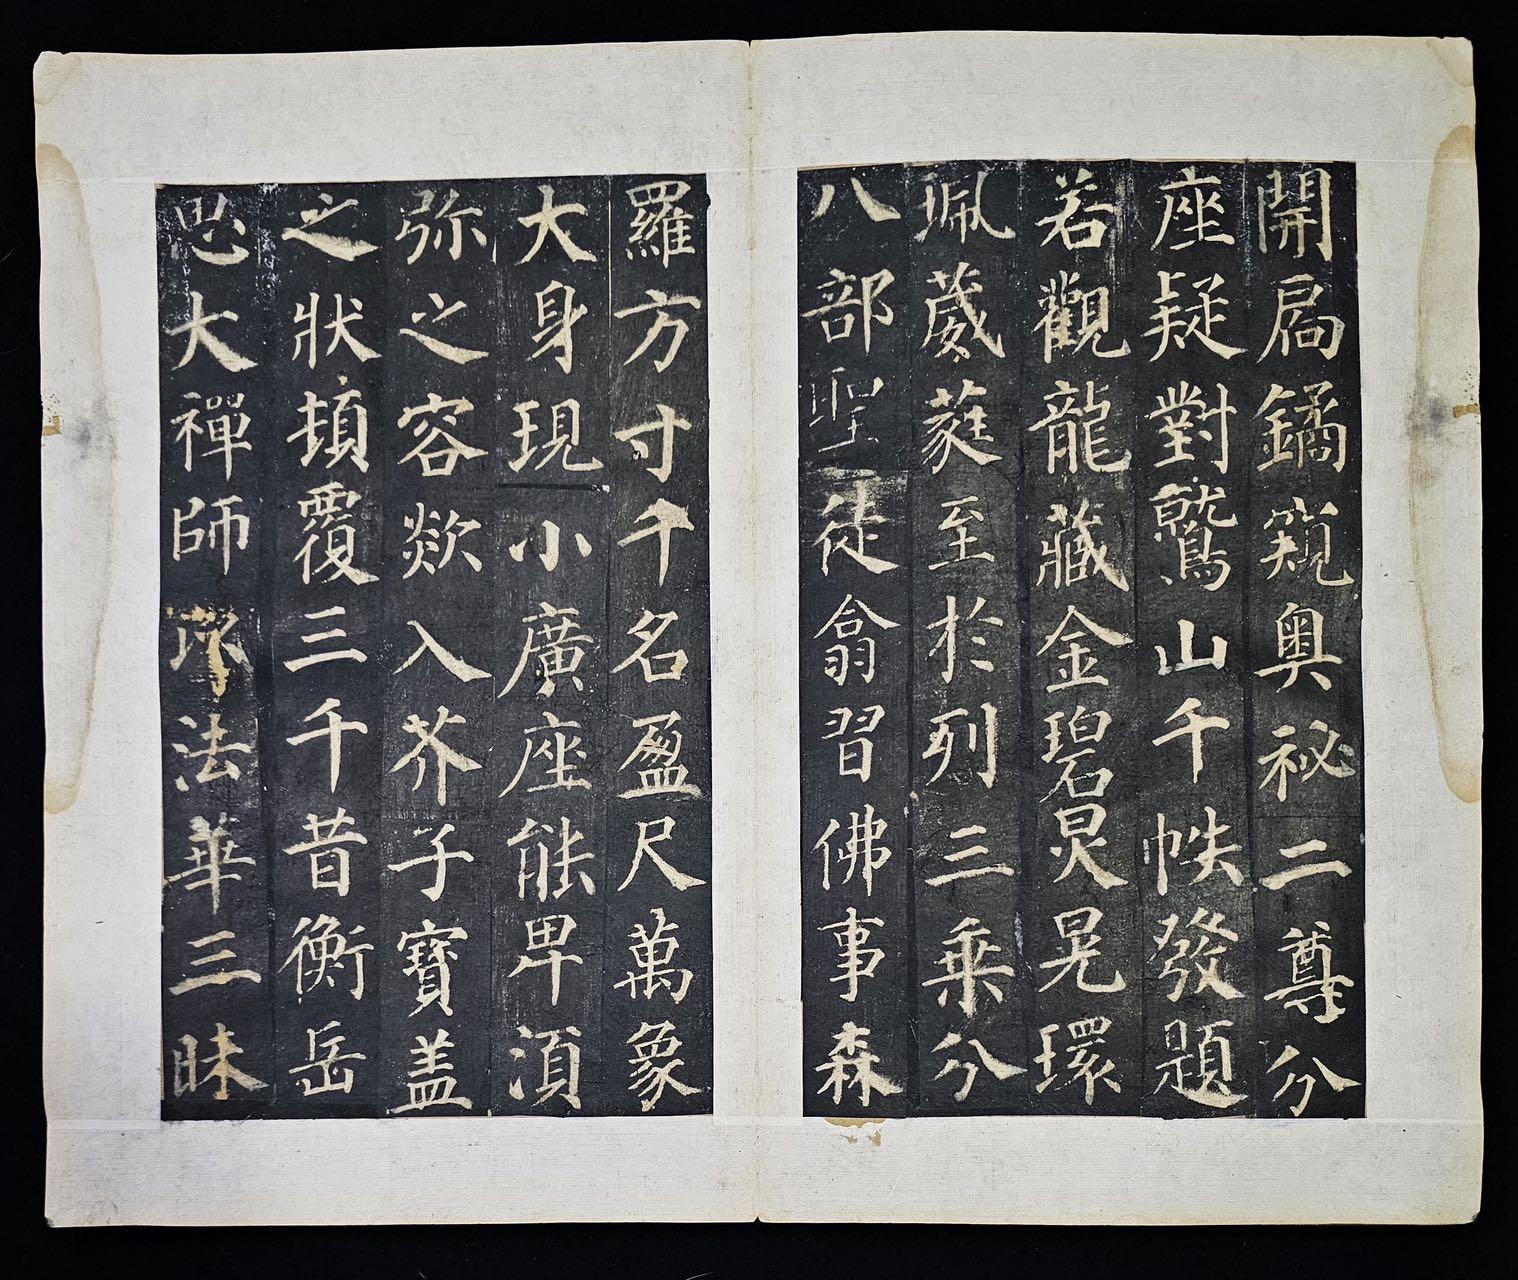 開扄鐍窺奧祕二尊分
座疑對鷲山千帙發題
若觀龍藏金碧炅晃環
珮葳蕤至於列三乗分
八部聖徒翕習佛事森
羅方寸千名盈尺萬象
大身現小廣座能卑湏
弥之容欻入芥子寳盖
之狀頓覆三千昔衡岳
思大禪師以法華三昧